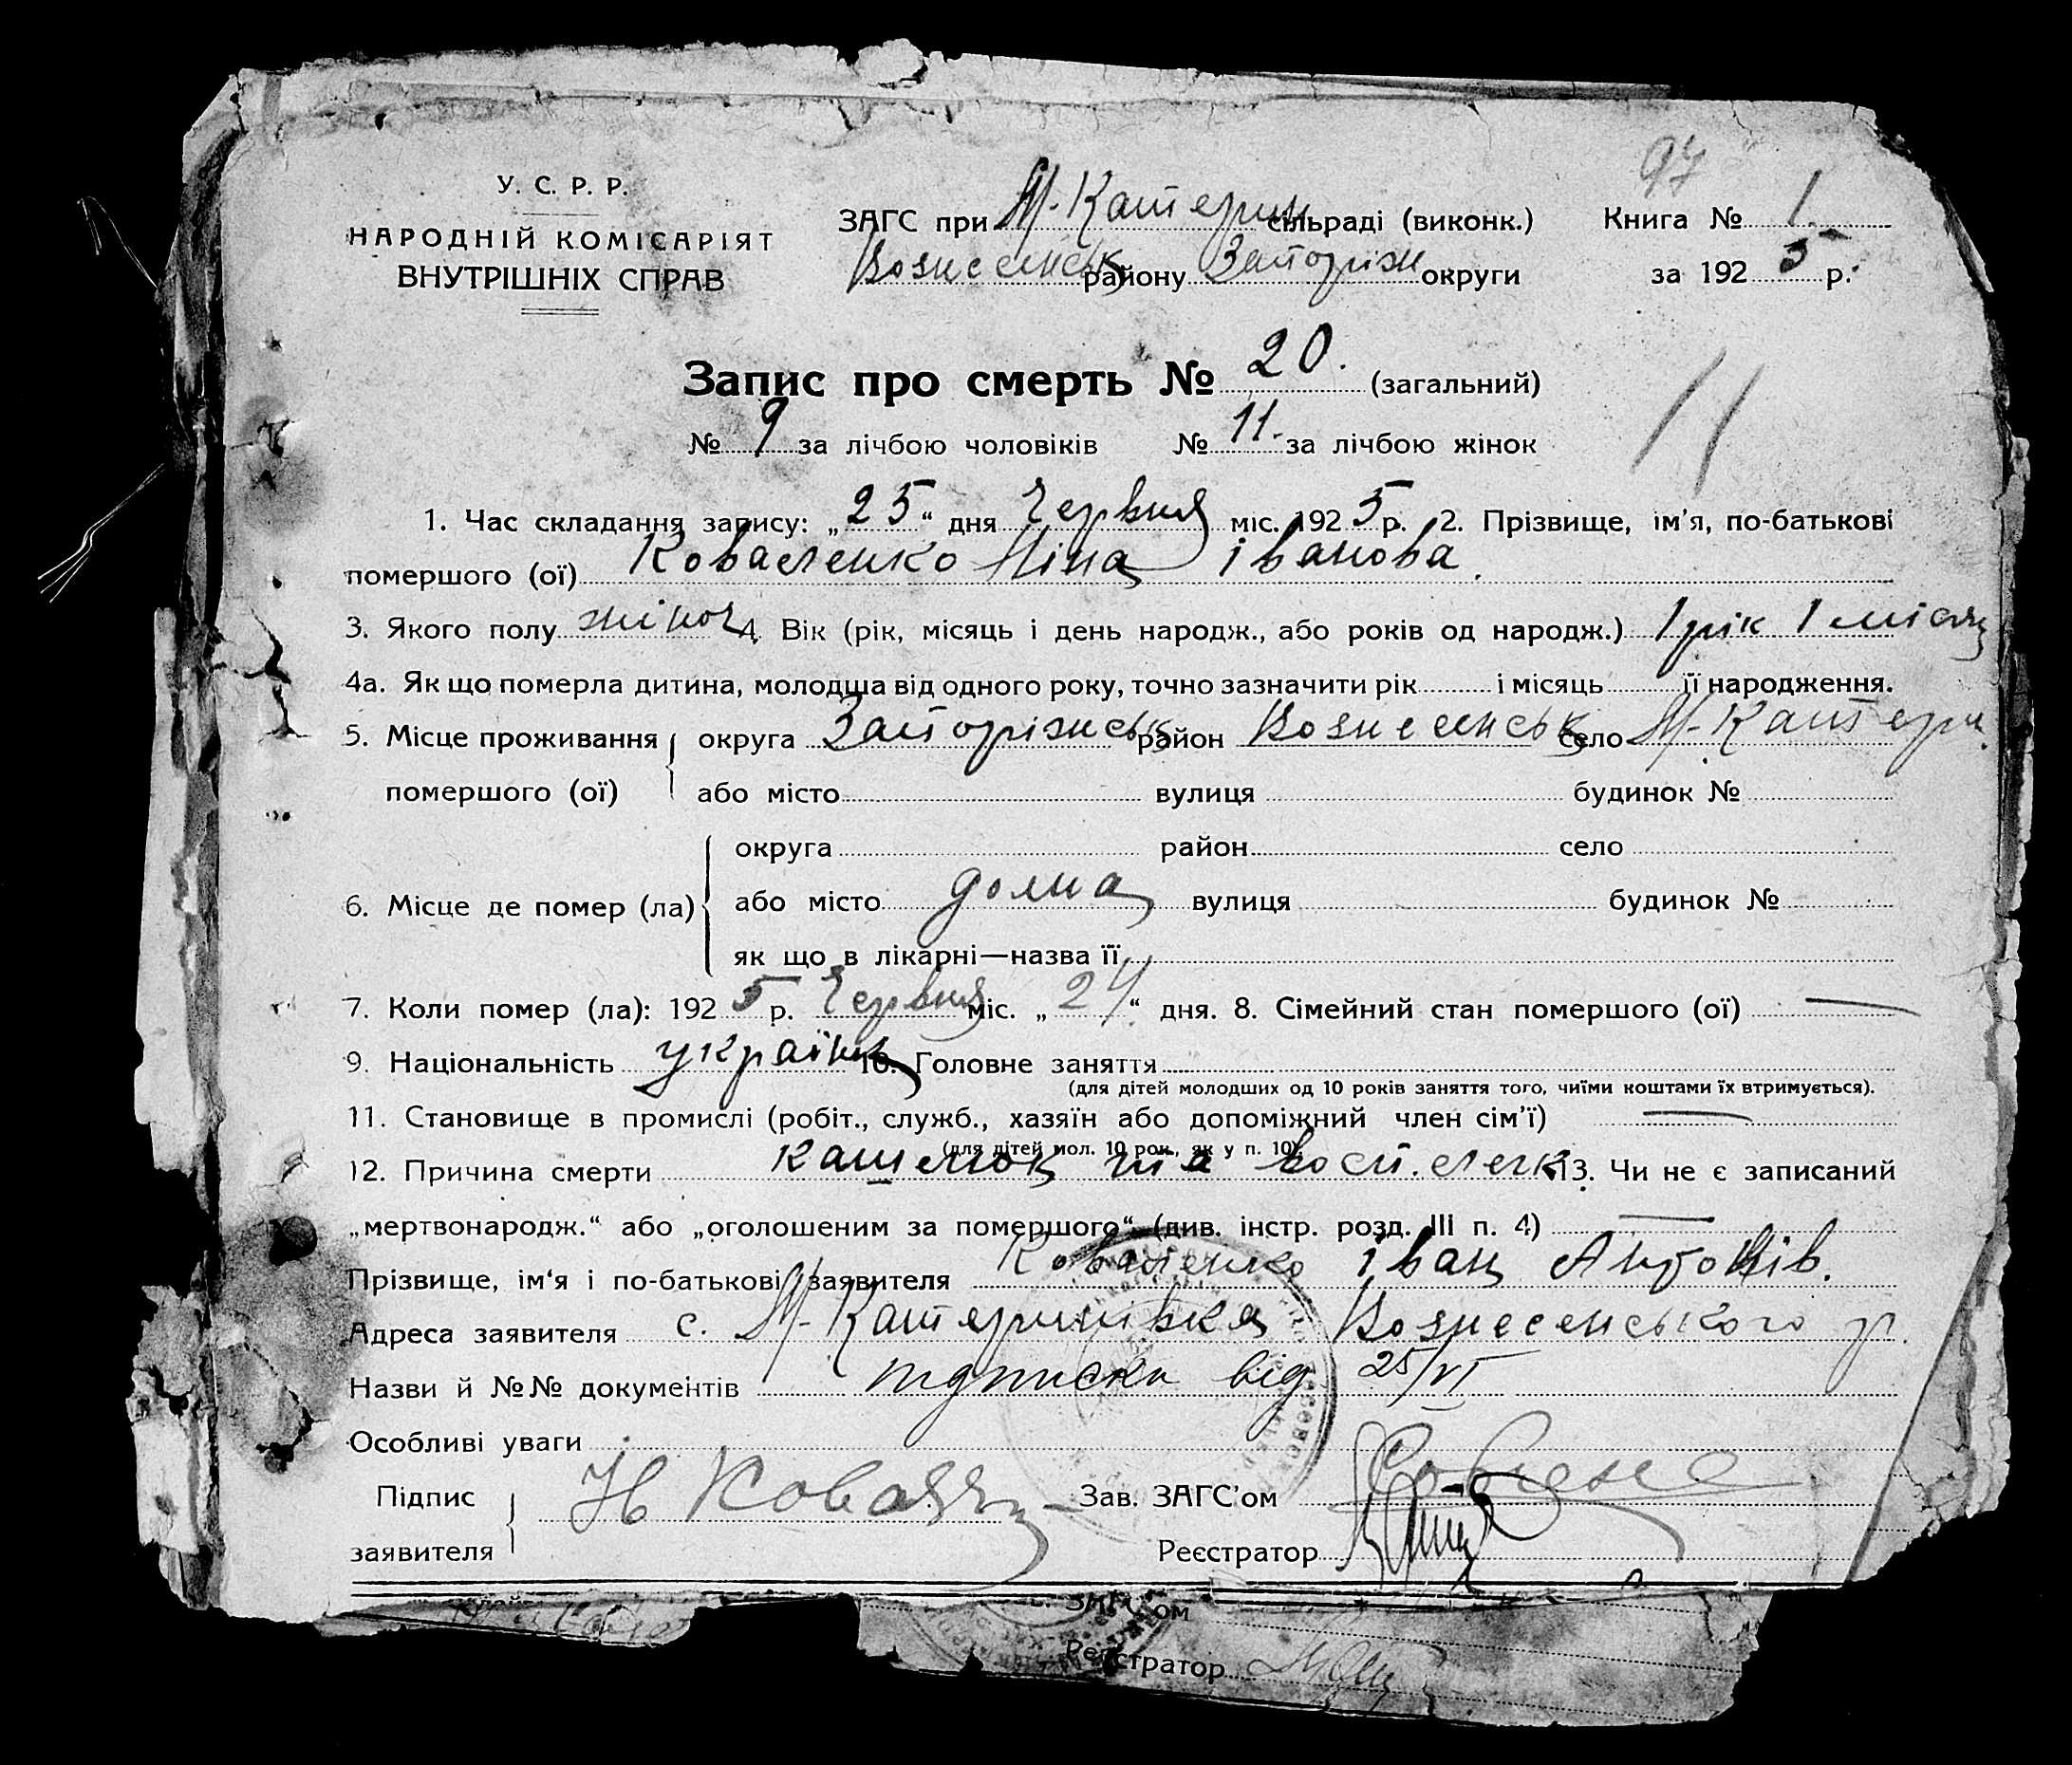 97
У. С. Р. Р.
НАРОДНІЙ КОМІСАРІЯТ
ВНУТРІШНІХ СПРАВ
ЗАГС при М-Катерин сільраді (виконк.) Книга № 1.
Вознесенськ району Запоріж округи за 192 5 р.
Запис про смерть № 20. (загальний)
№ 9 за лічбою чоловіків № 11. за лічбою жінок
11
1. Час складання запису: „25“ дня Червня міс. 192 5 р. 2. Прізвище, ім'я, по-батькові
помершого (ої) Коваленко Ніна Іванова.
3. Якого полу жіноч 4. Вік (рік, місяць і день народж., або років од народж.) 1 рік 1 місяц
4а. Як що померла дитина, молодша від одного року, точно зазначити рік і місяць її народження.
5. Місце проживання округа Запоріжськ район Вознесенськ село М-Катери.
помершого (ої) або місто вулиця будинок №
округа район село
6. Місце де помер (ла) або місто дома вулиця будинок №
як що в лікарні—назва її
7. Коли помер (ла): 192 5 р. Червня міс. „24“ дня. 8. Сімейний стан помершого (ої) —
9. Національність україн 10. Головне заняття
(для дітей молодших од 10 років заняття того, чиїми коштами їх втримується).
11. Становище в промислі (робіт., служб., хазяїн або допоміжний член сім'ї) —
(для дітей мол. 10 рок., як у п. 10).
12. Причина смерти кашлюк та восп. легк 13. Чи не є записаний
„мертвонародж.“ або „оголошеним за помершого“ (див. інстр. розд. III п. 4) —
Прізвище, ім'я і по-батькові заявителя Коваленко Іван Антонів.
Адреса заявителя с. М-Катеринівка Вознесенського р.
Назви й №№ документів підписка від 25/VI
Особливі уваги
Підпис Зав. ЗАГС'ом
заявителя Реєстратор
ЗАГС'ом
Реєстратор